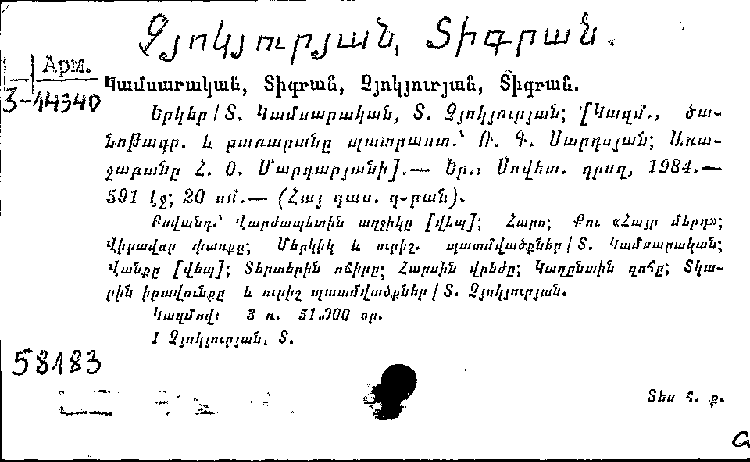 Չյոկյուրյան, Տիգրան.
Арм.
3-44340
Կամսարական, Տիգրան, Չյոկյուրյան, Տիգրան.
Երկեր / Տ. Կամսարական, Տ. Չյոկյուրյան; [Կազմ., ծա-
նոթագր. և բառարանը պատրաստ.՝ Ռ. Գ. Սարգսյան; Առա-
ջաբանը Հ. Օ. Մարգարյանի].— Եր.: Սովետ. գրող, 1984.—
591 էջ; 20 սմ.— (Հայ դաս. գ-րան).
Բովանդ.՝ Վարժապետին աղջիկը [վեպ]; Հարս; Քու «Հայր մերդ»;
Վիրավոր փառքը; Մերկիկ և ուրիշ. պատմվածքներ / Տ. Կամսարական;
Վանքը [վեպ]; Տերտերին ոճիրը; Հարսին վրեժը; Կաղընտին զոհը; Տկա-
րին իրավունքը և ուրիշ պատմվածքներ / Տ. Չյոկյուրյան.
Կազմով: 3 ռ. 51.000 օր.
I Չյոկյուրյան, Տ.
58183
Տես հ. ք.